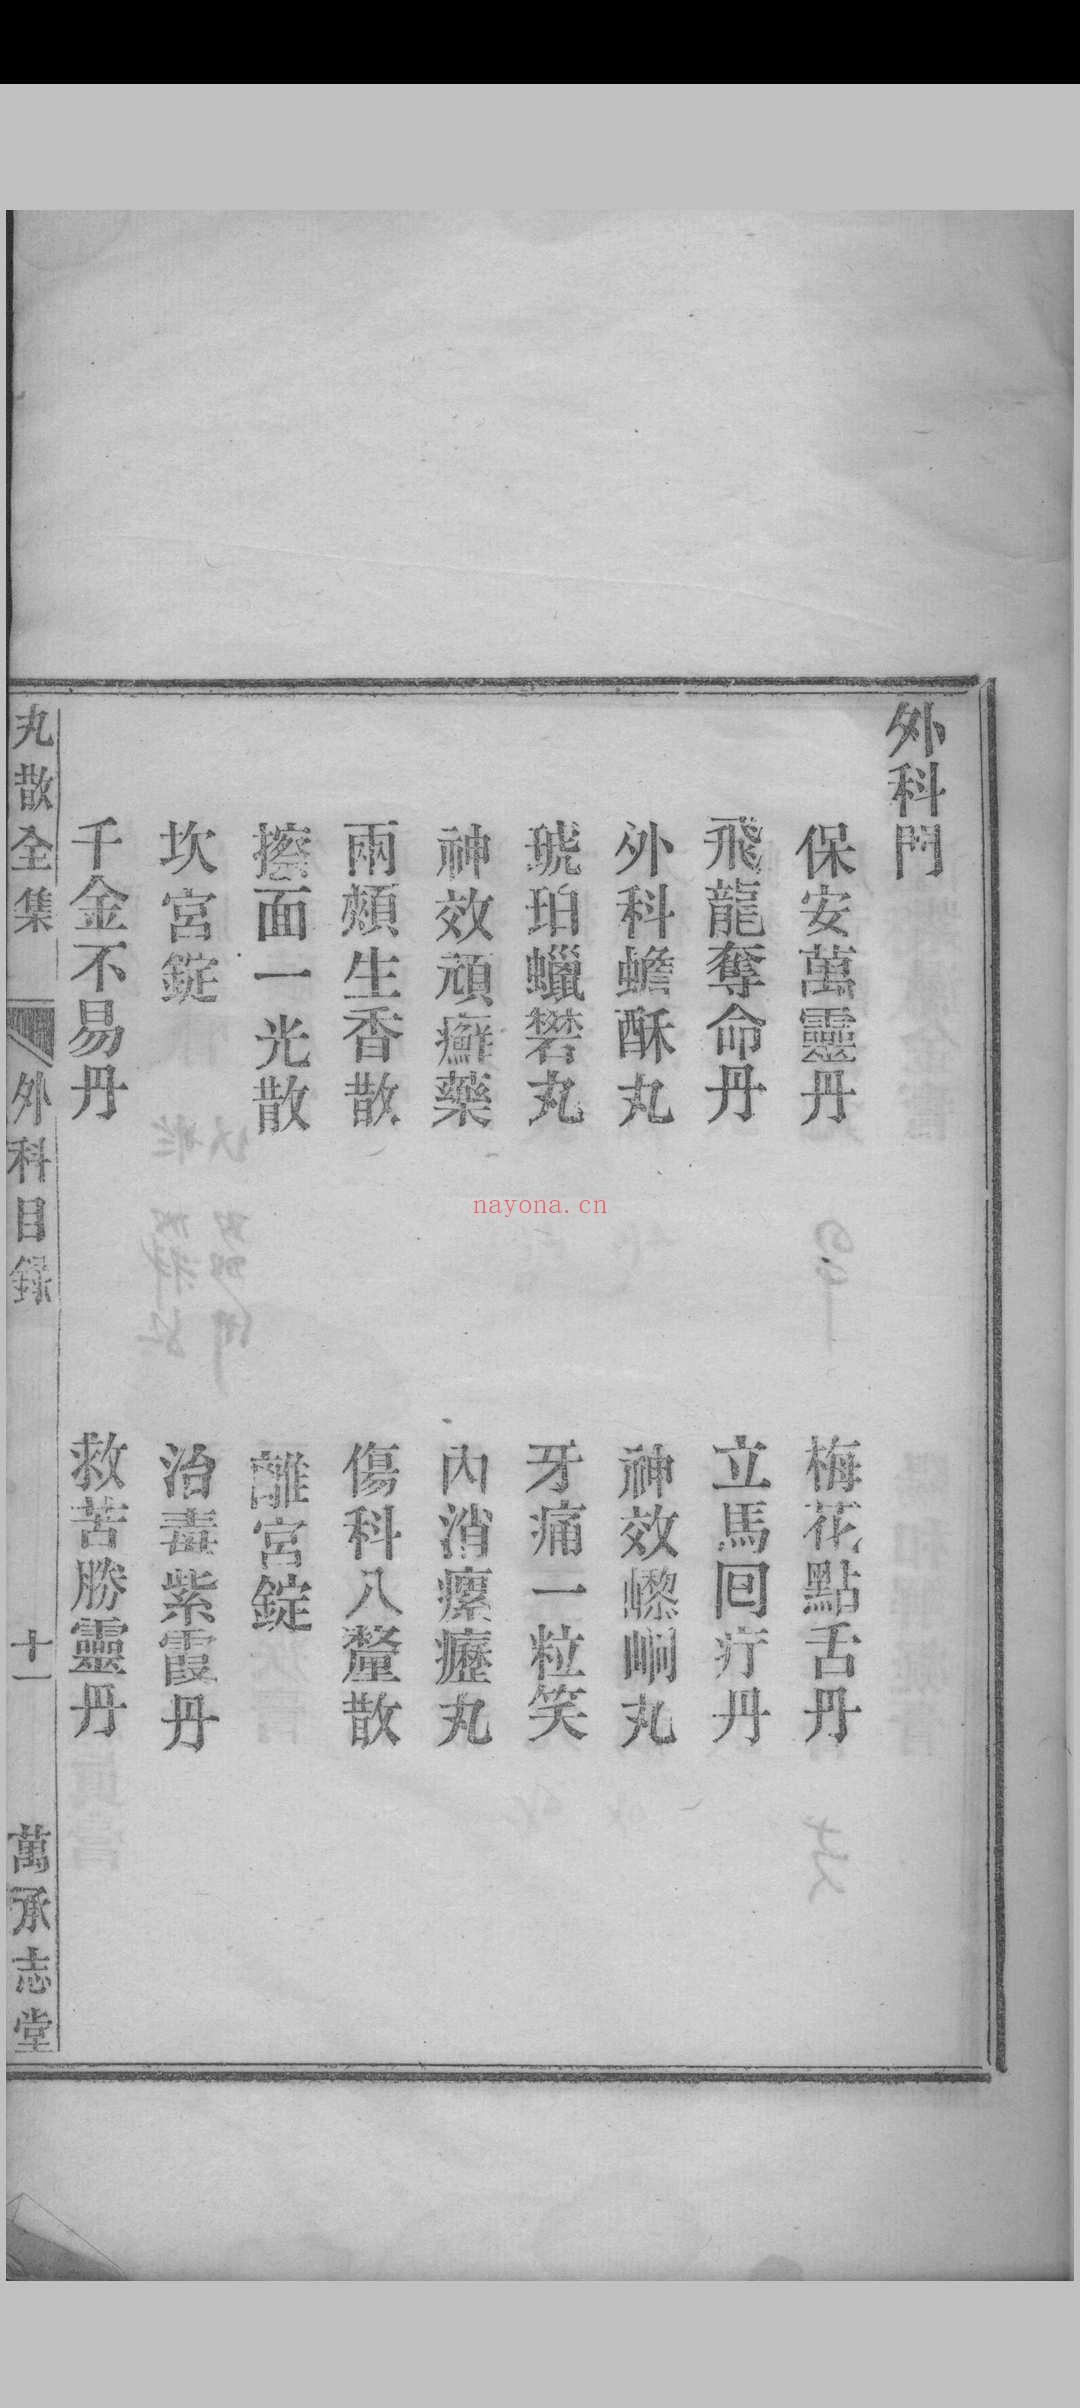 外科門
保安萬靈丹
梅花點舌丹
飛龍奪命丹
立馬回疔丹
外科蟾酥丸
神效嶚峒丸
琥珀蠟礬丸
牙痛一粒笑
神效頑癬藥
內消瘰癧丸
兩頰生香散
傷科八釐散
擦面一光散
離宮錠
坎宮錠
治毒紫霞丹
千金不易丹
救苦勝靈丹
丸散全集
外科目録
十一
萬承志堂
nayona.cn